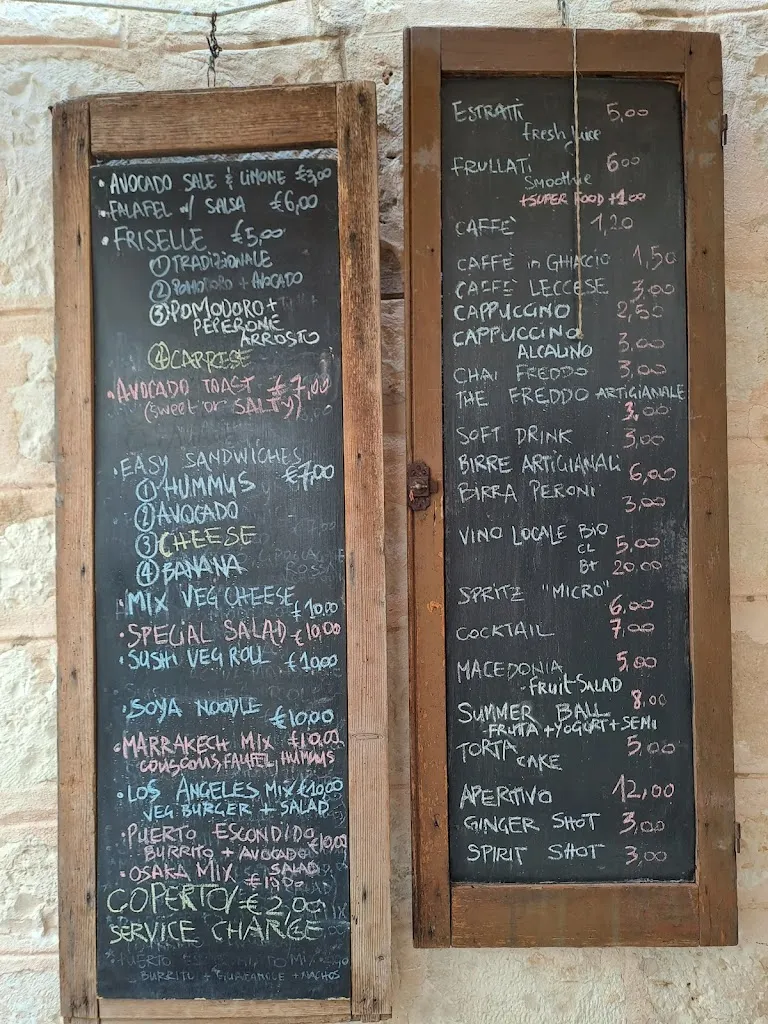 • AVOCADO SALE & LIMONE €3,00
• FALAFEL W/ SALSA €6,00
• FRISELLE €5,00
① TRADIZIONALE
② POMODORO + AVOCADO
③ POMODORO +
PEPERONE
ARROSTO
④ CAPRESE
• AVOCADO TOAST €7,00
(sweet or SALTY)
• EASY SANDWICHES
€7,00
① HUMMUS
② AVOCADO
③ CHEESE
④ BANANA
• MIX VEG CHEESE
€10,00
• SPECIAL SALAD €10,00
• SUSHI VEG ROLL €10,00
• SOYA NOODLE
€10,00
• MARRAKECH MIX €10,00
COUSCOUS, FALAFEL, HUMMUS
• LOS ANGELES MIX €10,00
VEG BURGER + SALAD
• PUERTO ESCONDIDO
€10,00
BURRITO + AVOCADO
SALAD
• OSAKA MIX
COPERTO/ €2,00
SERVICE CHARGE
BURRITO + GUACAMOLE + NACHOS
ESTRATTI 5,00
fresh Juice
FRULLATI 6,00
Smoothie
+SUPER FOOD +1,00
CAFFÈ 1,20
CAFFÈ in GHIACCIO 1,50
CAFFÈ LECCESE 3,00
CAPPUCCINO 2,50
CAPPUCCINO
ALCALINO 3,00
CHAI FREDDO 3,00
THE FREDDO ARTIGIANALE
3,00
SOFT DRINK 3,00
BIRRE ARTIGIANALI 6,00
BIRRA PERONI 3,00
VINO LOCALE BIO
CL 5,00
Bt 20,00
SPRITZ "MICRO"
6,00
COCKTAIL 7,00
MACEDONIA 5,00
-fruit SALAD
SUMMER BALL 8,00
-FRUTTA + YOGURT + SEMI
TORTA 5,00
CAKE
APERTIVO 12,00
GINGER SHOT 3,00
SPIRIT SHOT 3,00